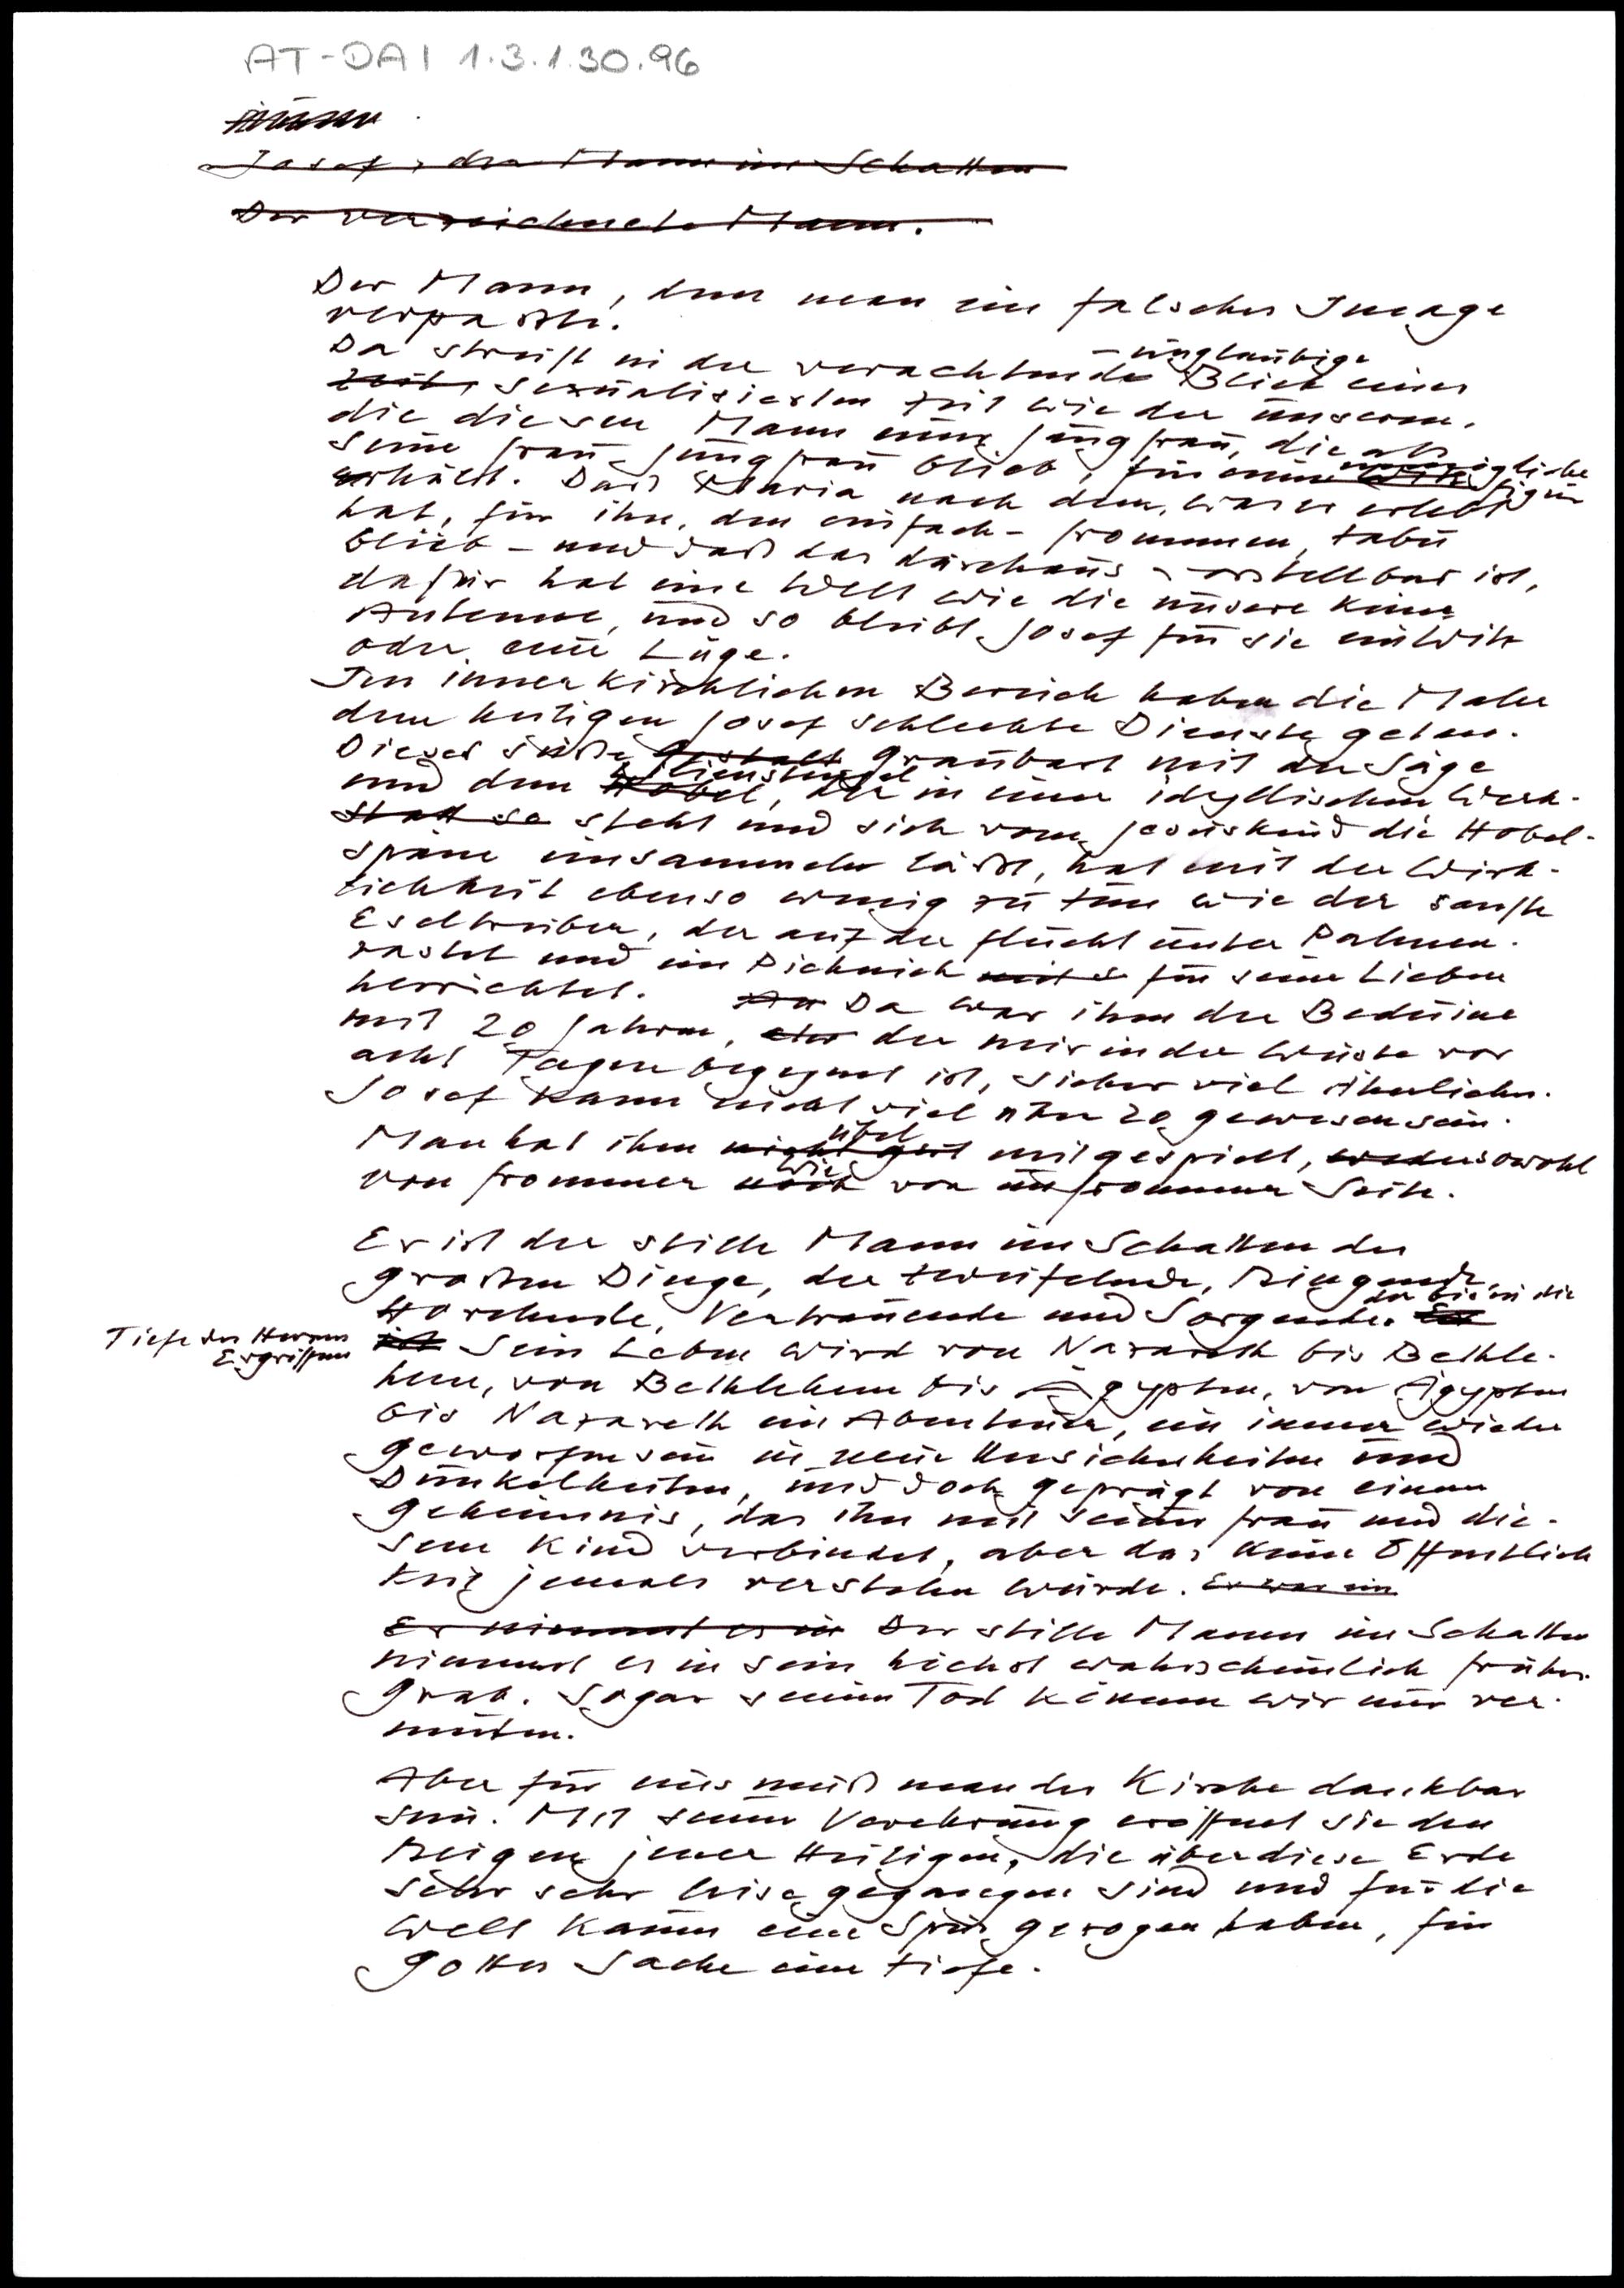 AT-DAI 1.3.1.30.96
Josef, der Mann im Schatten
Der verzeichnete Mann.
Der Mann, dem man ein falsches Image
verpasste.
Da streift in der verachtende - ungläubige Blick einer
Zeit, sexualisierten Zeit wie der unseren.
die diesen Mann einer Jungfrau, die als
seine Frau Jungfrau blieb, für eine unmögliche Figur
erhält. Daß Maria nach dem, was er erlebt
hat, für ihn, den einfach-frommen, tabu
blieb - und daß das durchaus vorstellbar ist,
dafür hat eine Welt wie die unsere keine
Antenne, und so bleibt Josef für sie ein Witz
oder eine Lüge.
Im innerkirchlichen Bereich haben die Maler
dem heiligen Josef schlechte Dienste getan.
Dieser süße Gestalt Graubart mit der Säge
und dem Hobel Lilienstengel, der in einer idyllischen Werk-
statt so steht und sich vom Jesuskind die Hobel-
späne einsammeln läßt, hat mit der Wirk-
lichkeit ebenso wenig zu tun wie der sanfte
Eseltreiber, der auf der Flucht unter Palmen
rastet und ein Picknick mit s für seine Lieben
herrichtet. Da war ihm der Beduine
mit 20 Jahren, der mir in der Wüste vor
acht Tagen begegnet ist, sicher viel ähnlicher.
Josef kann nicht viel über 20 gewesen sein.
Man hat ihm nicht gut übel mitgespielt, weder sowohl
von frommer noch wie von unfrommer Seite.
Er ist der stille Mann im Schatten der
großen Dinge, der Zweifelnde, Ringende,
Horchende, Vertrauende und Sorgende. der bis in die
Tiefe des Herzens
Ergriffene
ist Sein Leben wird von Nazareth bis Bethle-
hem, von Bethlehem bis Ägypten, von Ägypten
bis Nazareth ein Abenteuer, ein immer wieder
geworfensein in neue Unsicherheiten und
Dunkelheiten, und doch geprägt von einem
Geheimnis, das ihn mit seiner Frau und die-
sem Kind verbindet, aber das keine Öffentlich
keit jemals verstehen würde. Er war ein
Er nimmt es in Der stille Mann im Schatten
nimmt es in sein höchst wahrscheinlich frühes
Grab. Sogar seinen Tod können wir nur ver-
muten.
Aber für uns muß man der Kirche dankbar
sein. Mit seiner Verehrung eröffnet sie den
Reigen jener Heiligen, die über diese Erde
sehr sehr leise gegangen sind und für die
Welt kaum eine Spur gezogen haben, für
Gottes Sache eine tiefe.